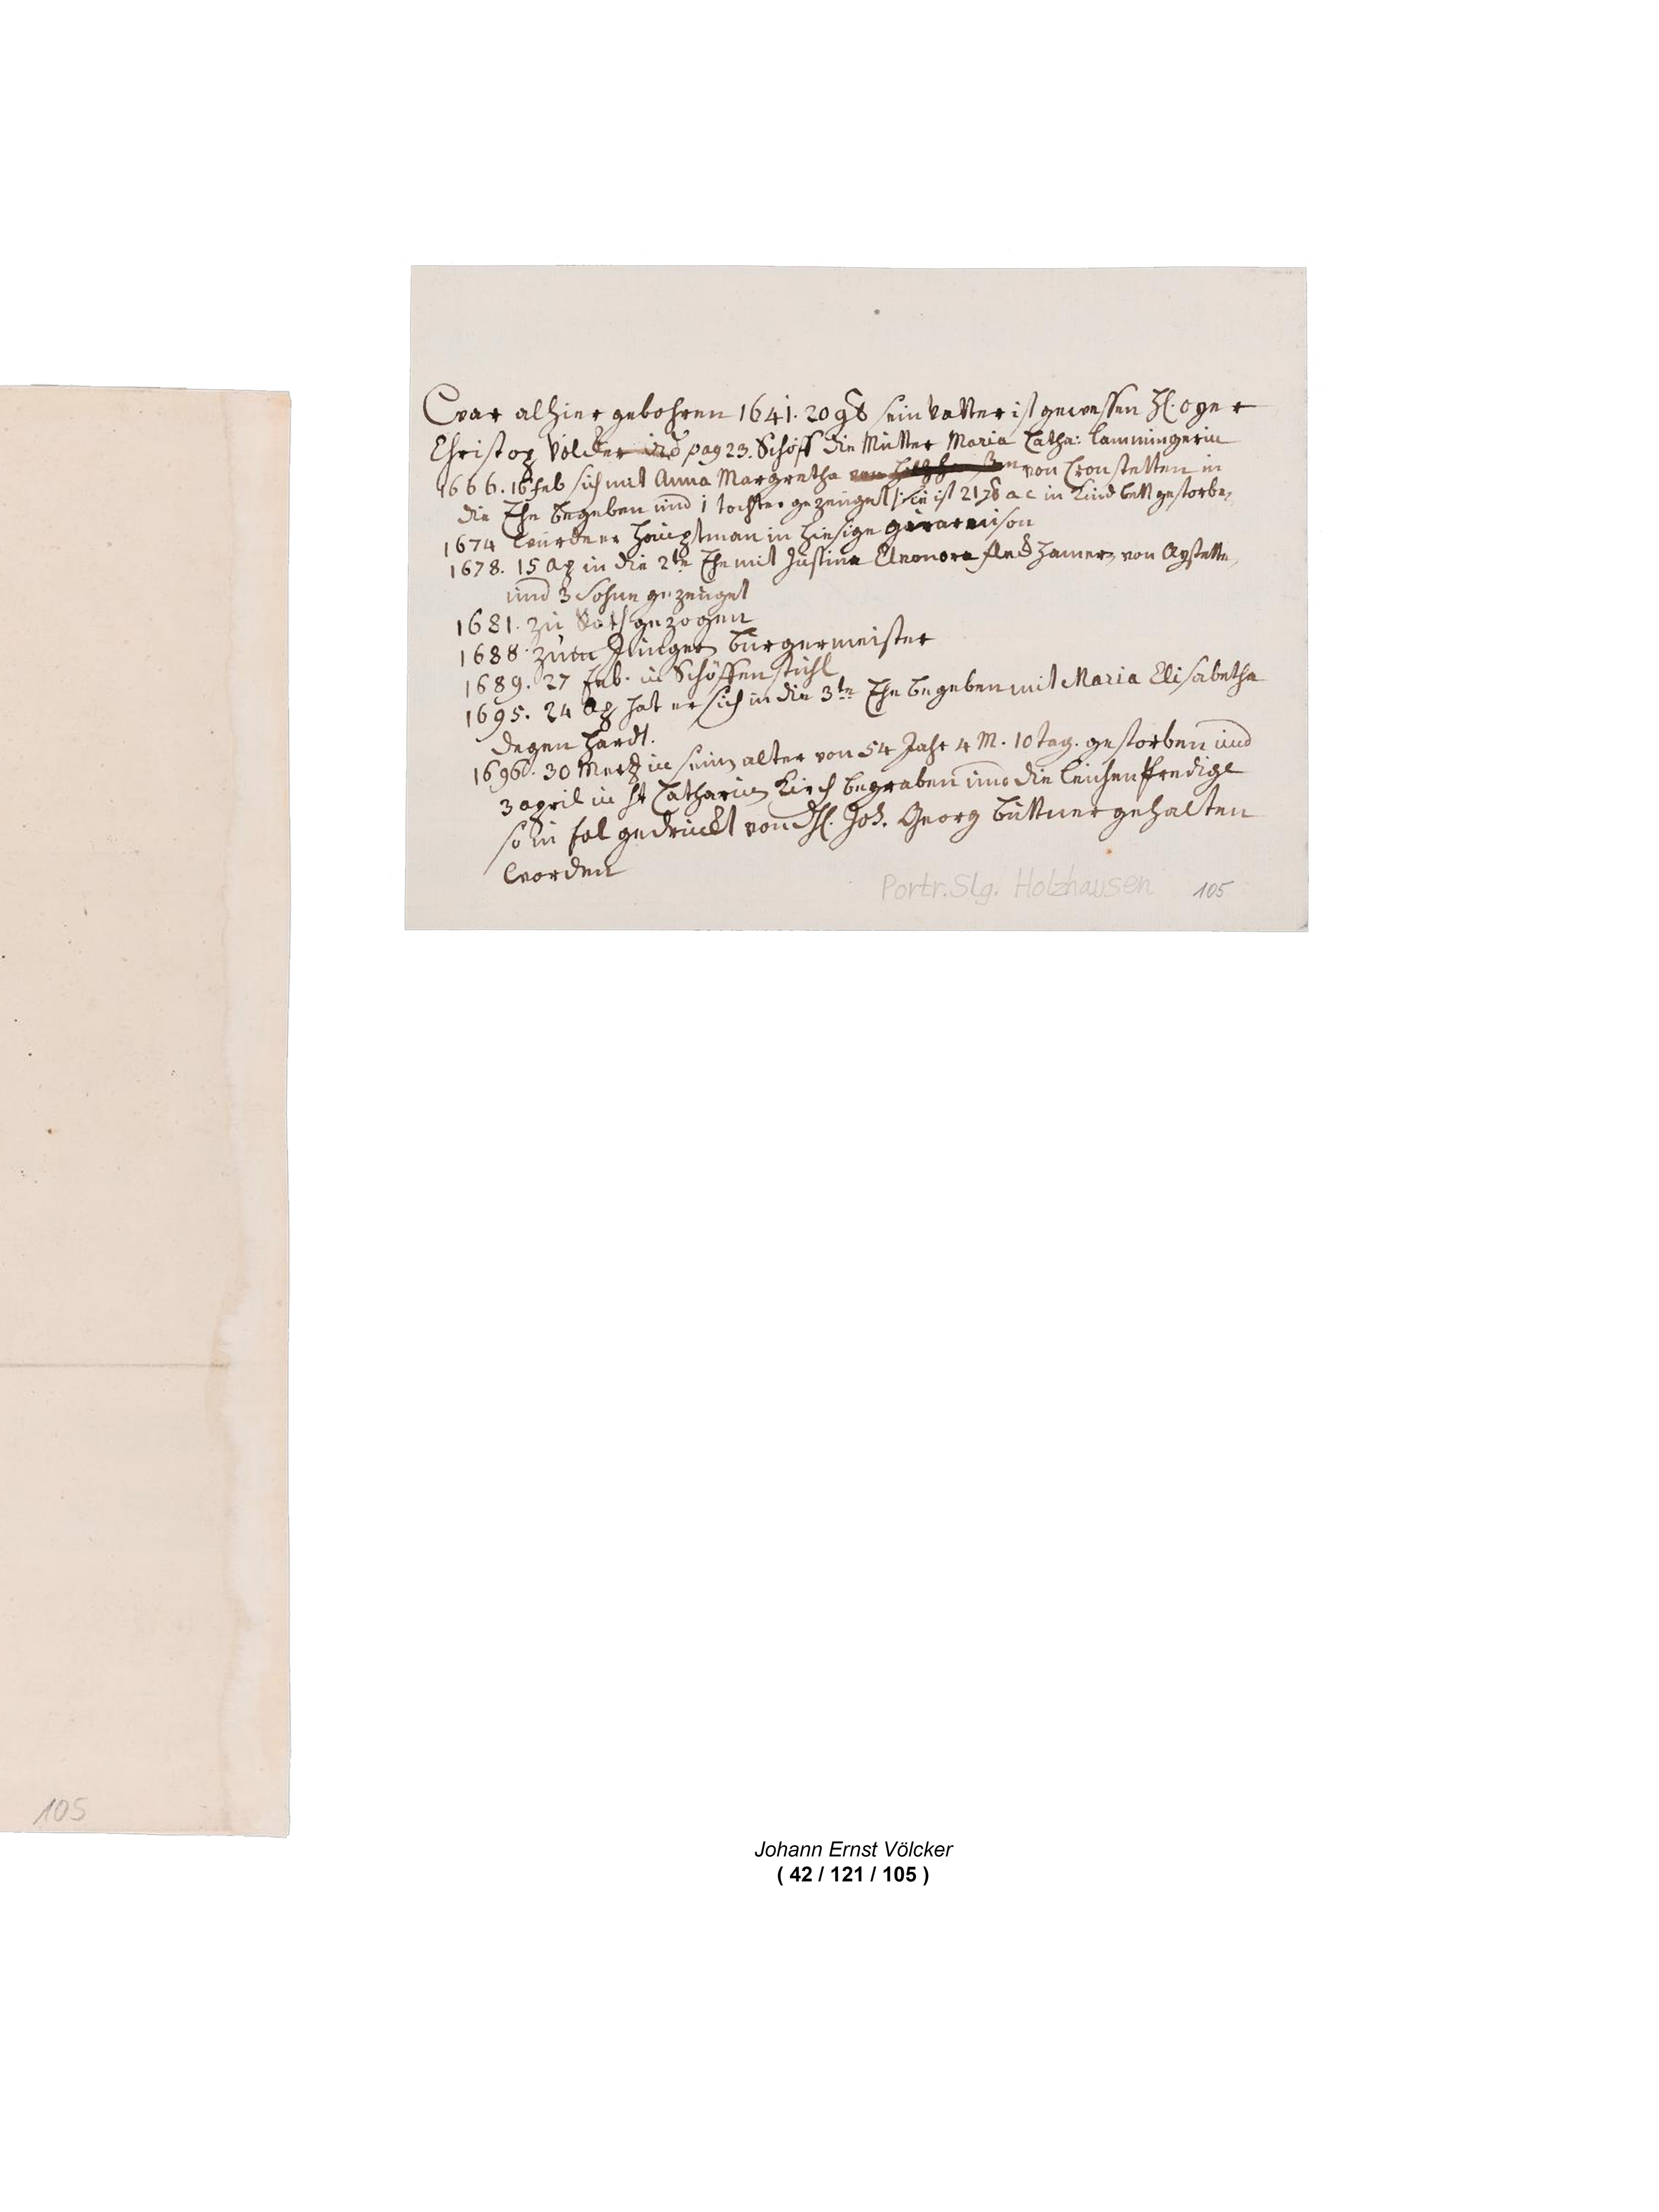 War alhier gebohren 1641. 20 9b sein vatter ist gewessen H.
Christop Völcker vid pag 23. Schöff die Mutter Maria Catha: Lammingerin
1666. 16 feb sich mit Anna Margretha von Cronstetten in
die Ehe begeben und 1 tochter gezeuget sie ist 21 7b a c in Kindbett gestorben
1674 wurde er Hauptman in hiesige
1678. 15 Ap in die 2te Ehe mit Justina Eleonora von Aystetten
und 3 Sohne gezeuget
1681. zu Rath gezogen
1688. zum Jünger burgermeister
1689. 27 feb. in Schöffenstuhl
1695. 24 Ap hat er sich in die 3te Ehe begeben mit Maria Elisabetha
Degenhardt.
1696. 30 Mertz in seinem alter von 54 Jahr 4 M. 10 tag. gestorben und
3 april in St Catharinen Kirch begraben und die leichenpredigt
so in fol gedruckt von H. Joh. Georg Büttner gehalten
worden
Portr. Slg. Holzhausen 105
105
Johann Ernst Völcker
( 42 / 121 / 105 )